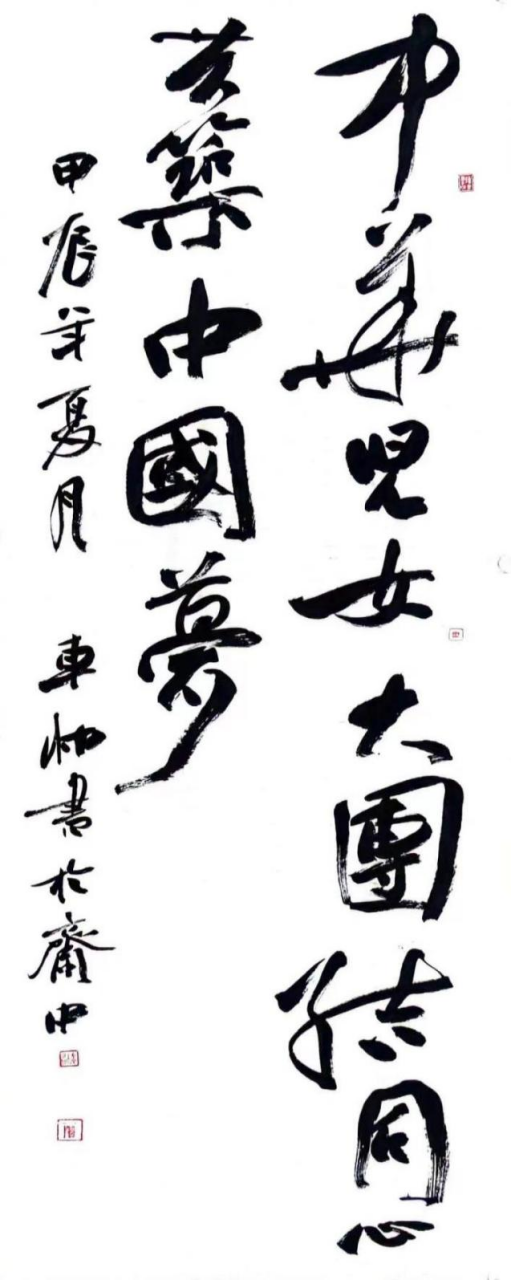 中華兒女大團结同心
共築中國夢
甲辰年夏月
車
書於齋中